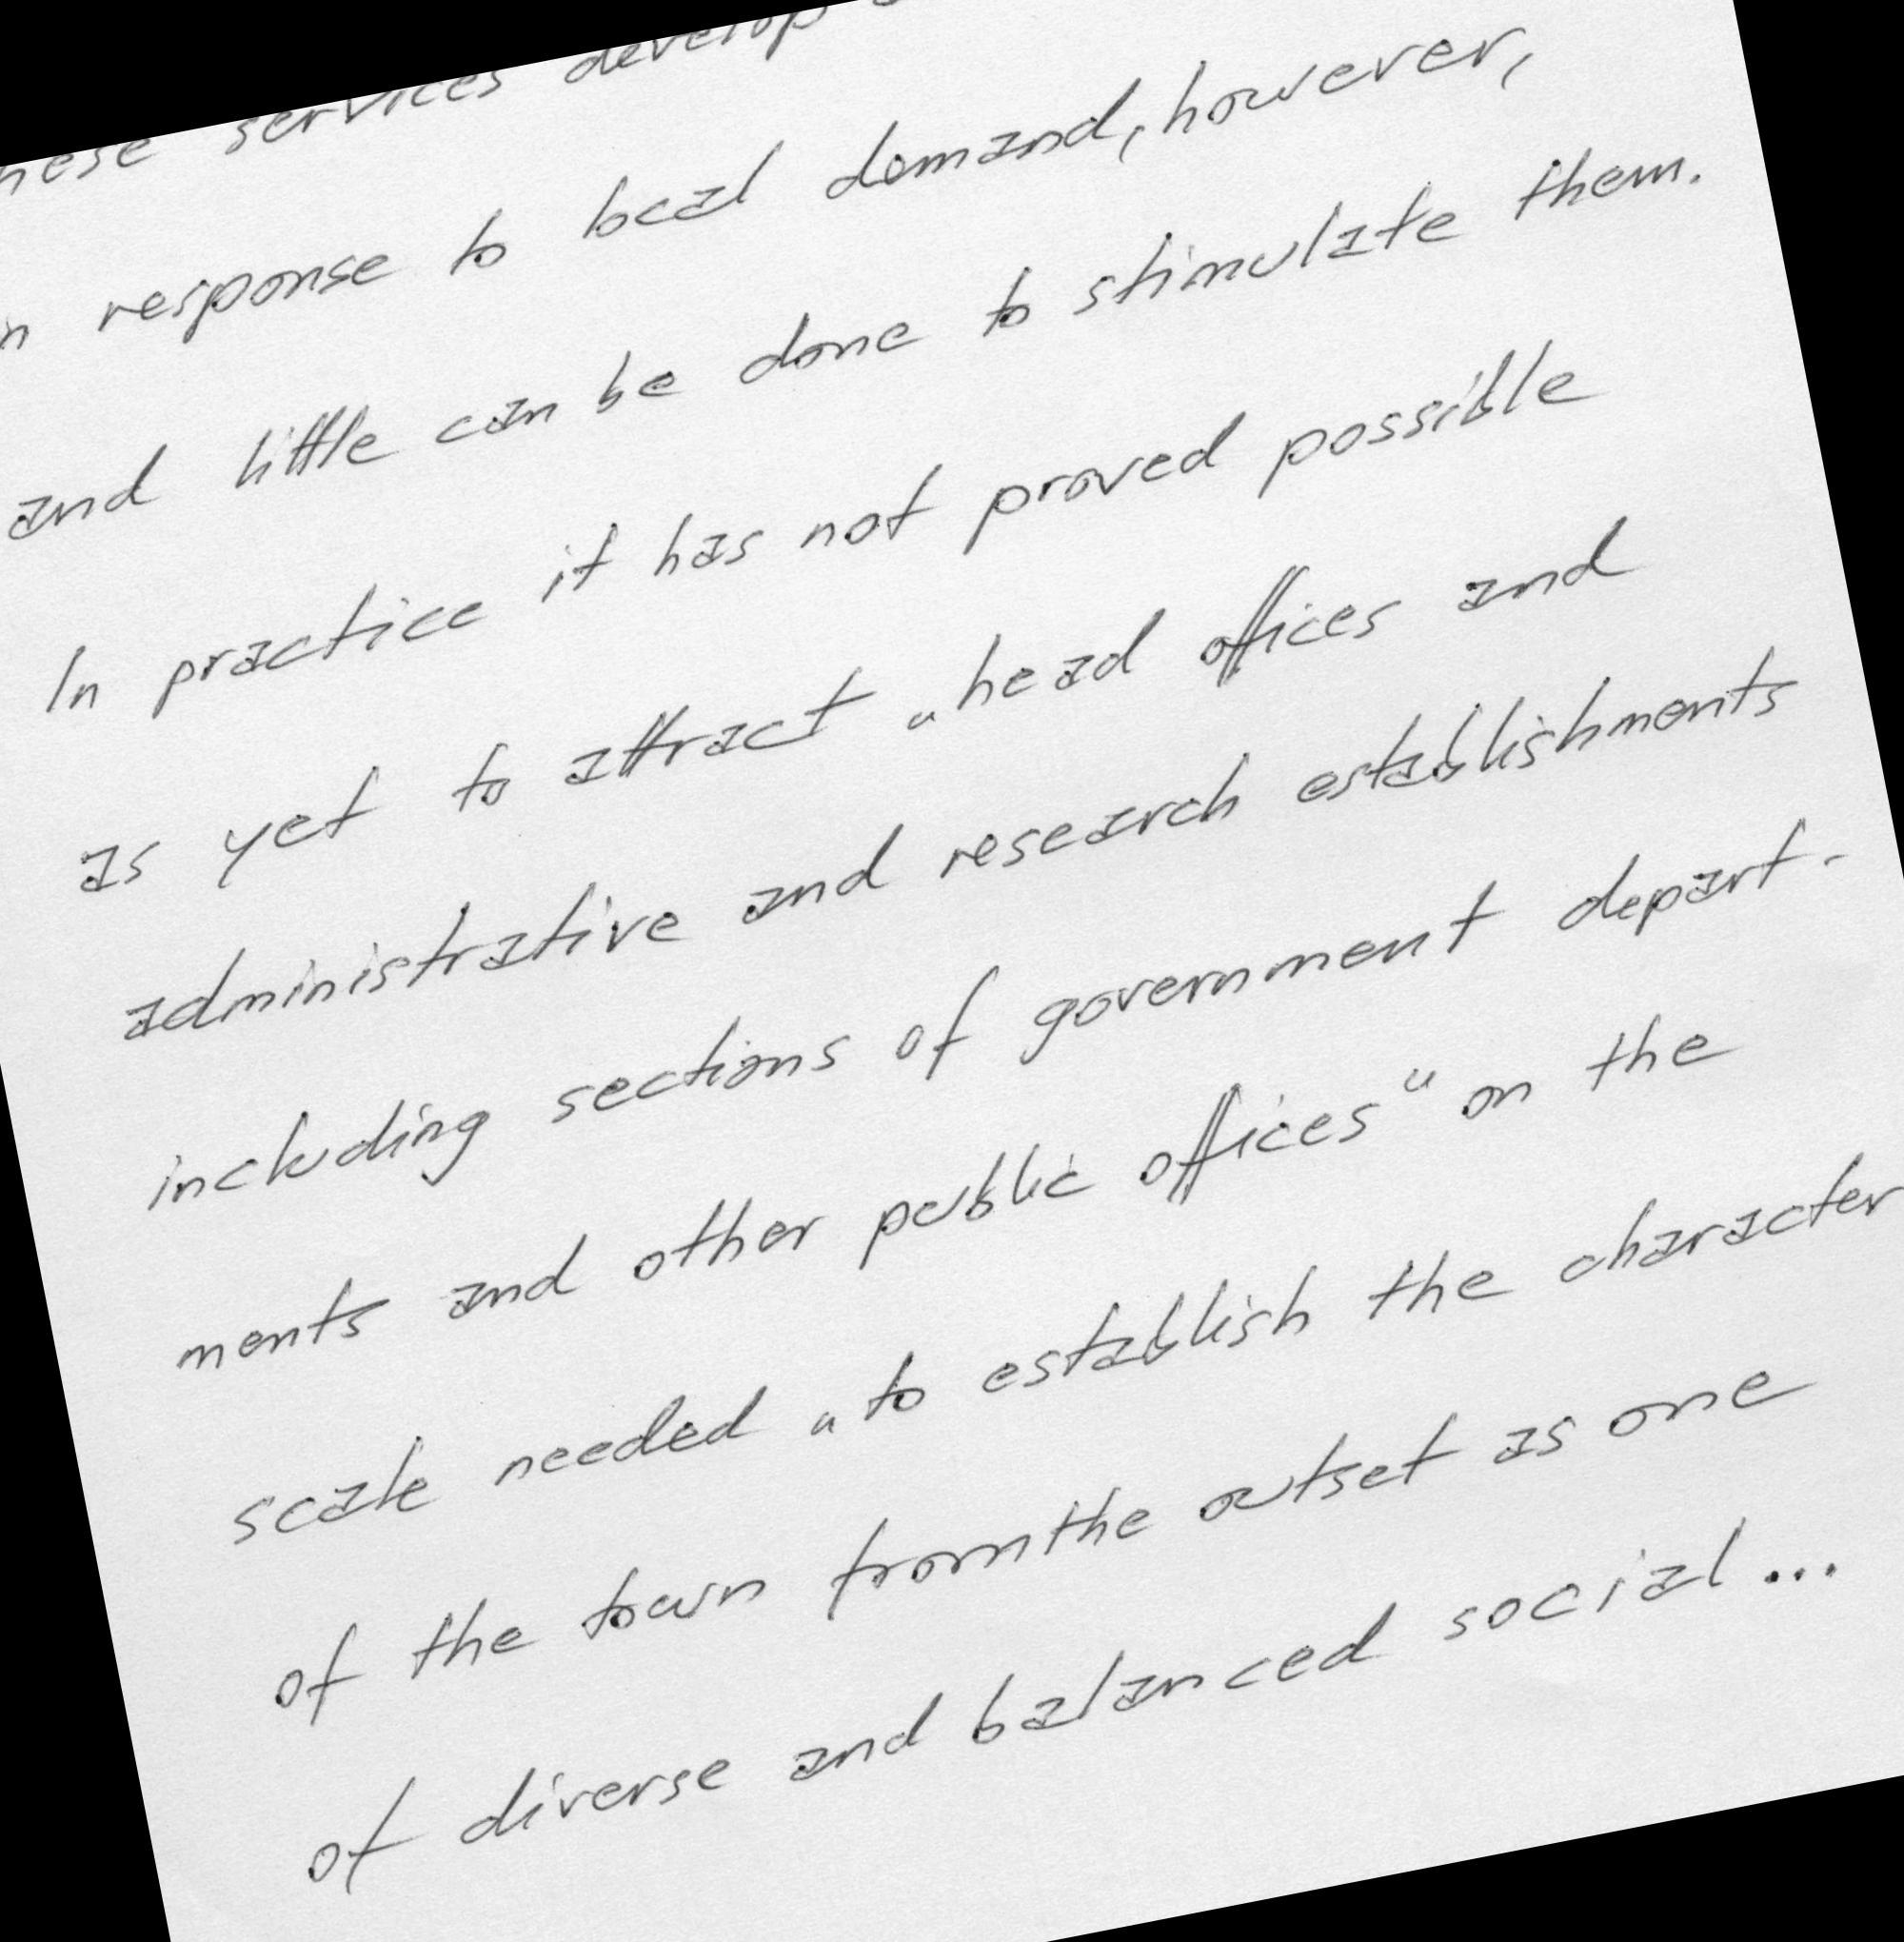 services develop
response to local demand, however,
and little can be done to stimulate them.
In practice it has not proved possible
as yet to attract „head offices and
administrative and research establishments
including sections of government depart-
ments and other public offices“ on the
scale needed „to establish the character
of the town from the outset as one
of diverse and balanced social...